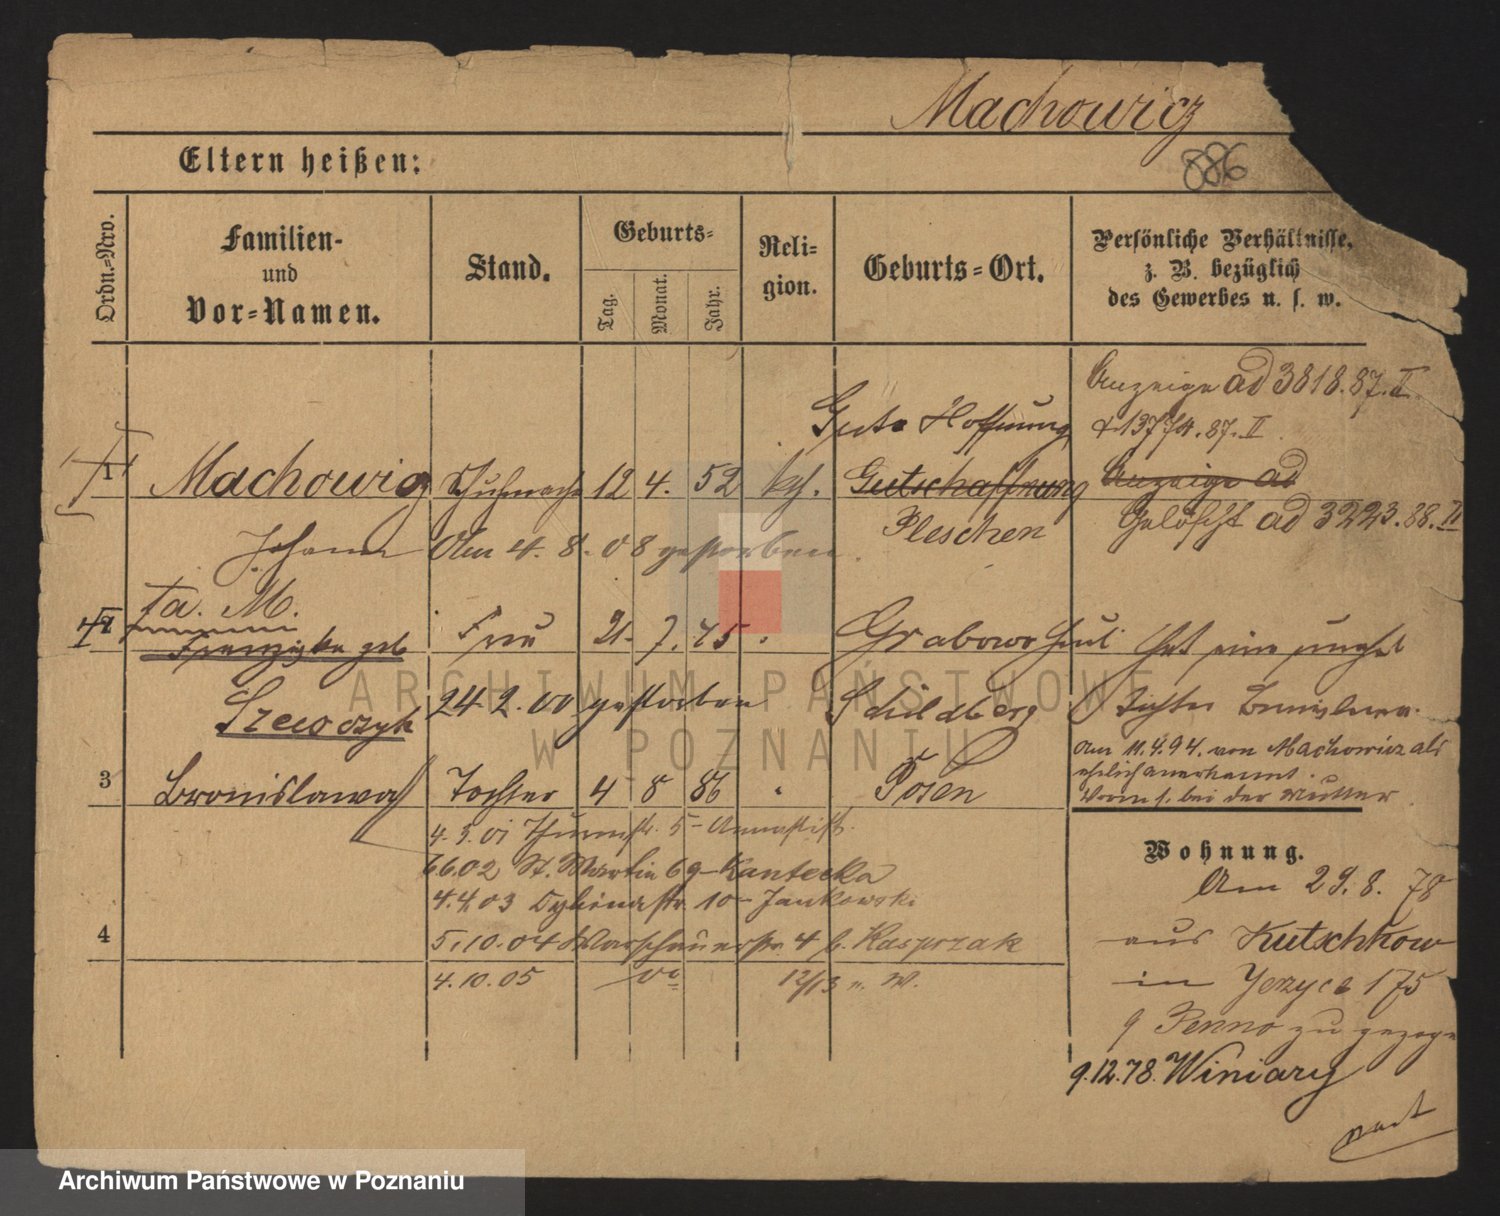 Machowicz
886
Eltern heißen:
Ordn.-Nro.
Familien-
und
Vor-Namen.
Stand.
Geburts-
Tag.
Monat.
Jahr.
Reli-
gion.
Geburts-Ort.
Persönliche Verhältnisse,
z. B. bezüglich
des Gewerbes u. s. w.
Anzeige ad 3818.87.II.
13774.87.II
Gute Hoffnung
1
Machowicz Schuhmacher 12 4. 52 kath. Gutschaffnung Anzeige ad
Pleschen
Gelöscht ad 3223.88.II
Johann Am 4. 8. 08 gestorben.
fa. M.
2 Franziska geb Frau 21. 7. 45 " Grabow Hat eine unehel
Szewczyk 24 2. 00 gestorben Schildberg Tochter Bronislawa.
am 11.4.94. von Machowicz als
ehelich anerkannt.
Worm s. bei der Mutter
3 Bronislawa Tochter 4 8 86 " Posen
4.3.01 Thurmstr. 5 - Annastift.
6.6.02 St. Martin 69 - Kantecka
4.4.03 Dybinastr. 10 - Jankowski
4
5.10.04 Warschauerstr. 4 b. Kasprzak
4.10.05 do 12/13 n. W.
Wohnung.
Am 29. 8. 78
aus Kutschkow
in Jerzyce 175
Penno zu gezoge
9.12.78. Winiary
Archiwum Państwowe w Poznaniu
ARCHIWUM PAŃSTWOWE
W POZNANIU